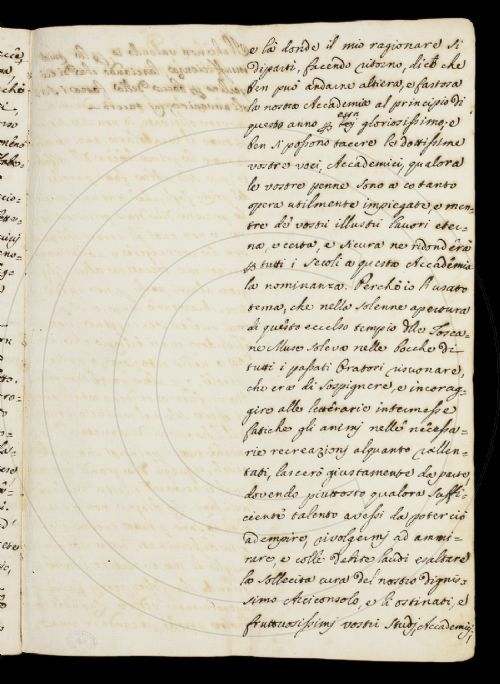 e là donde il mio ragionare si
diparti, facendo ritorno, dico che
ben può andarne altiera, e fastosa
la nostra Accademia al principio di
questo anno p essa
gloriosissimo, e
ben si possono tacere le dottissime
vostre voci, Accademici, qualora
le vostre penne sono a cotanto
opera utilmente impiegate, e men=
tre de' vostri illustri lavori eter=
na, e certa, e sicura ne ridonderà
p tutti i secoli a questa Accademia
la nominanza. Perchè io l'usato
tema, che nella solenne apertura
di questo eccelso tempio delle Tosca=
ne Muse soleva nelle bocche di
tutti i passati Oratori risuonare,
che era di sospignere, e incorag=
gire alle letterarie intermesse
fatiche gli animj nelle necessa=
rie recreazionj alquanto rallen=
tati, lascerò giustamente da parte,
dovendo piuttosto qualora suffi=
ciente talento avessi da poterciò
adempire, rivolgermj ad ammi=
rare, e colle debite laudi esaltare
la sollecita cura del nostro dignis=
simo Arciconsolo, e li ostinati, e
fruttuosissimj vostri studj, Accademicj,